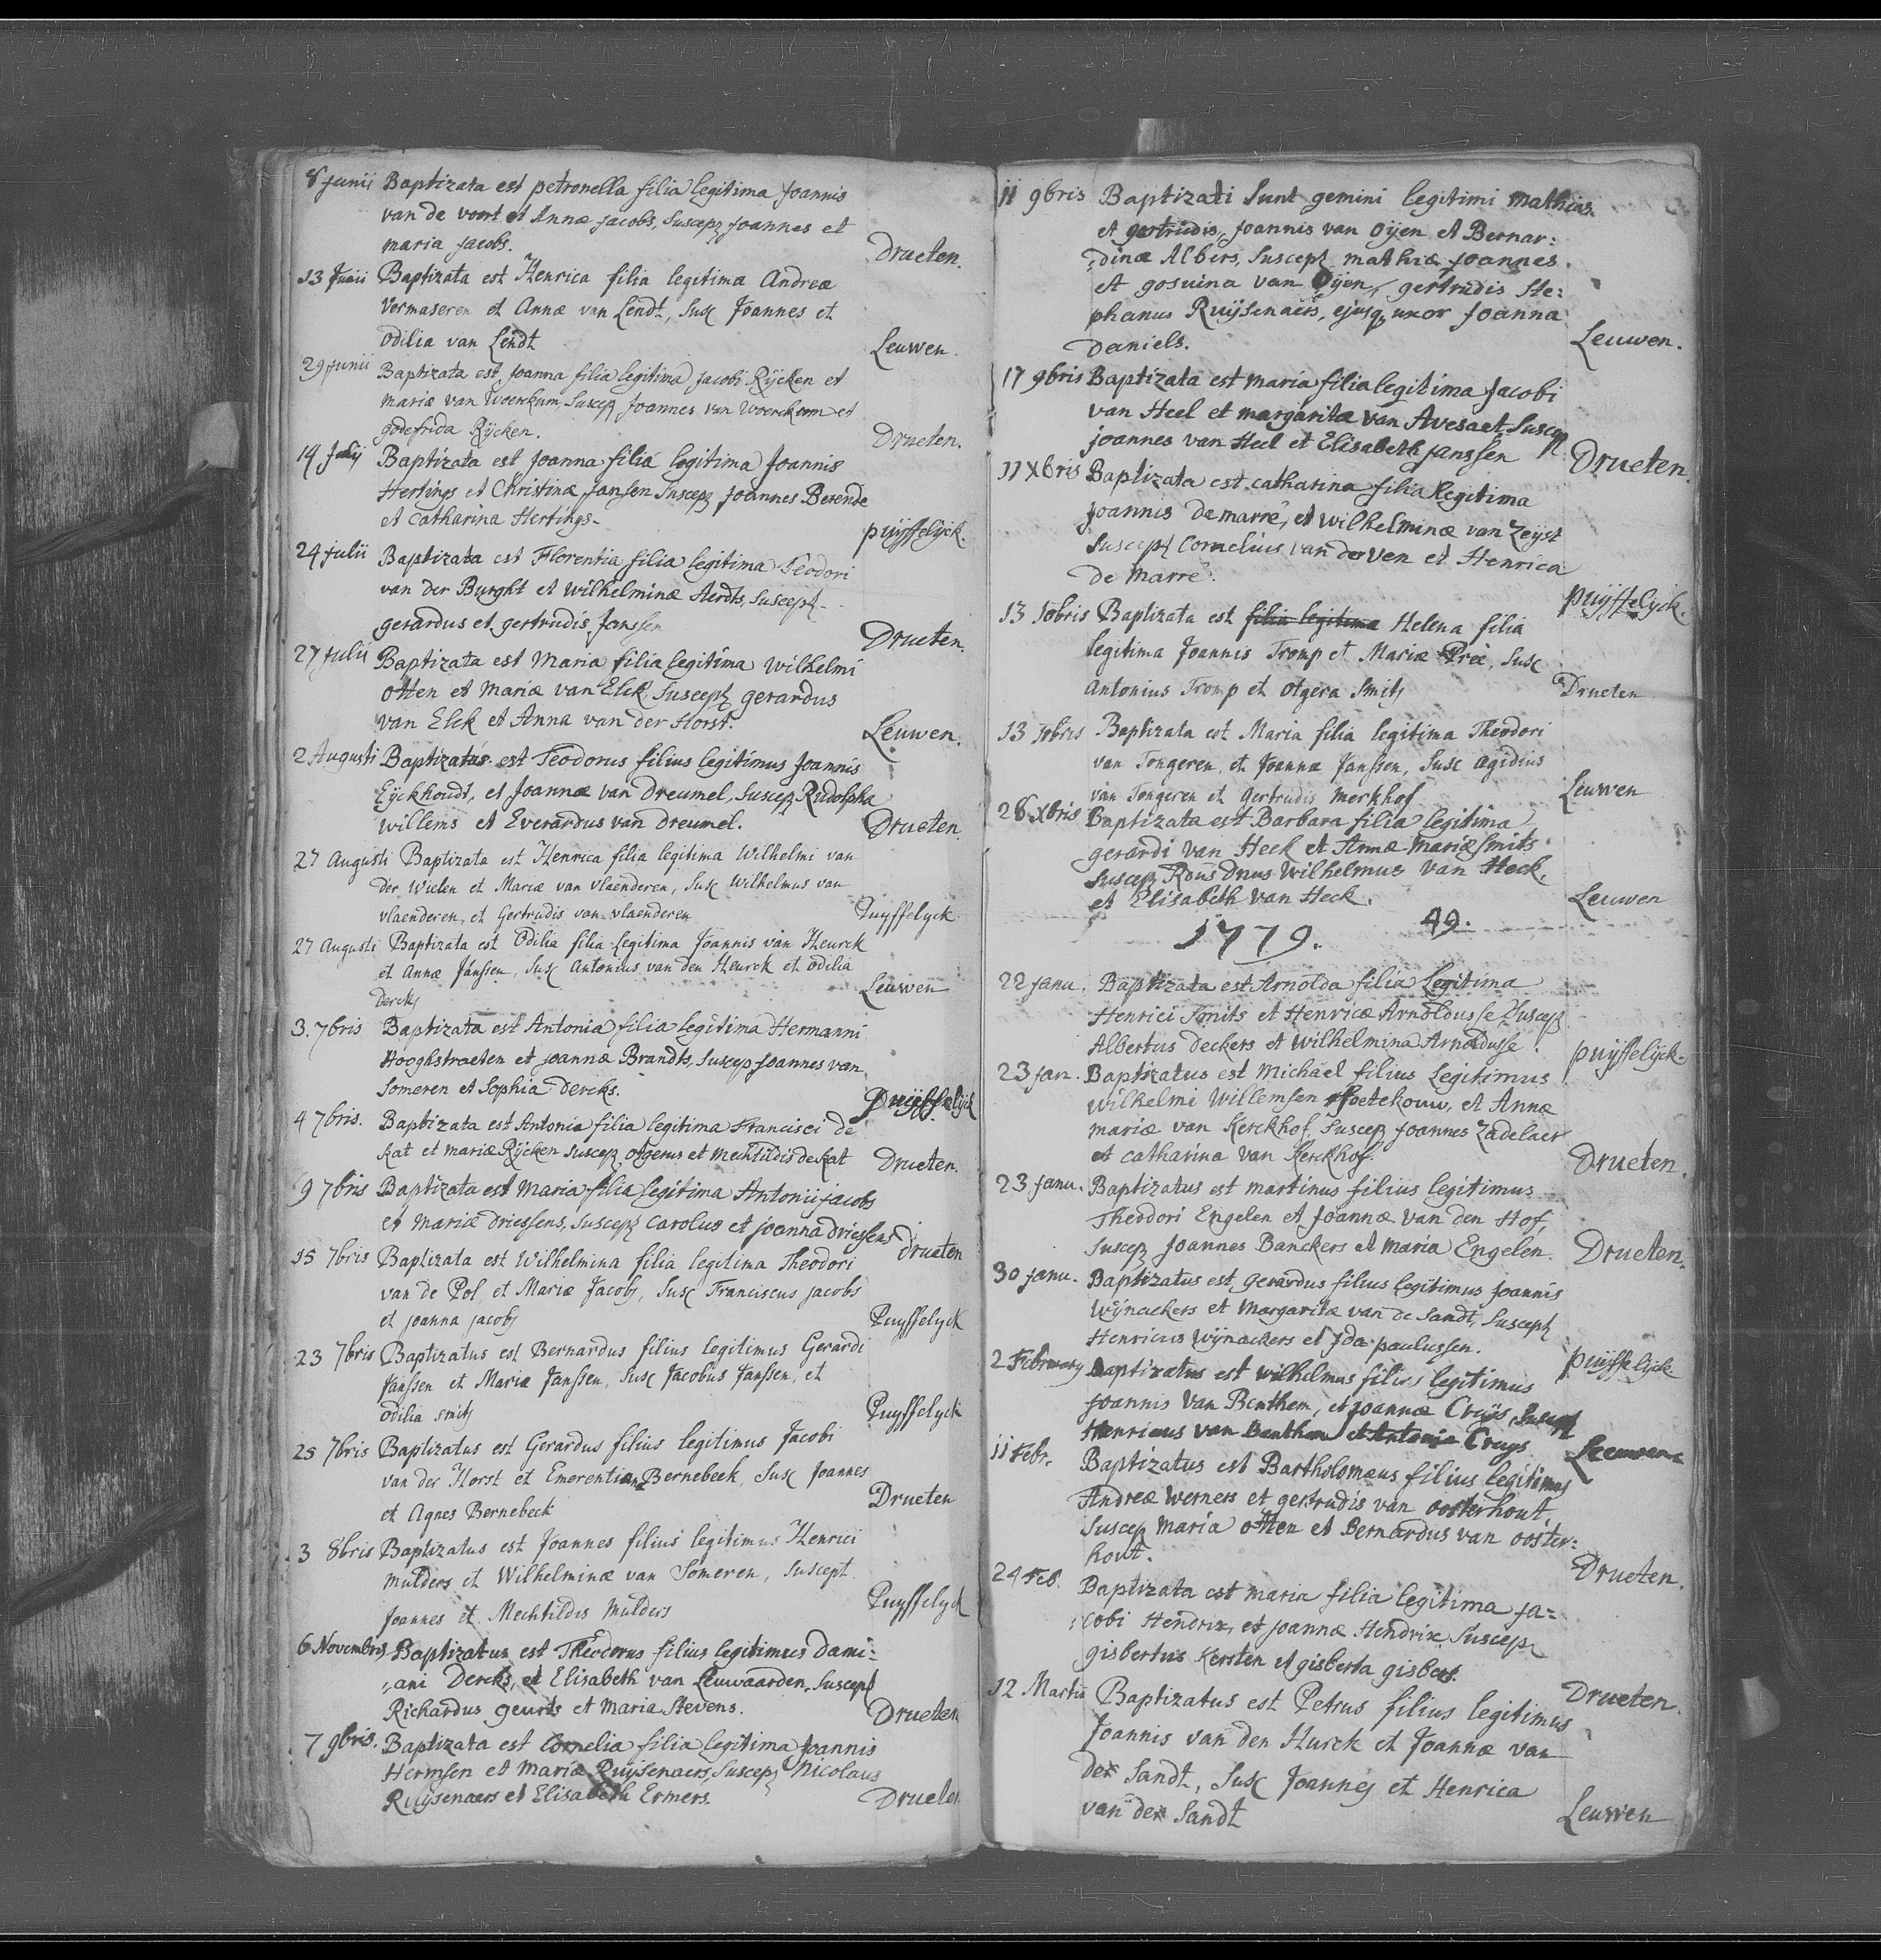 8 junii Baptizata est petronella filia legitima Joannis
van de voort et Annæ jacobs, Suscep Joannes et
maria jacobs. Drueten.
13 Junii Baptizata est Henrica filia legitima Andreæ
Vermaseren et Annæ van Lendt, Susc Joannes et
Odilia van Lendt Leuwen.
29 junii Baptizata est Joanna filia legitima jacobi Rijcken et
mariæ van Woerckum, Suscep Joannes van Woerckom et
godefrida Rijcken. Drueten.
14 julij Baptizata est Joanna filia legitima Joannis
Hertings et Christinæ Jansen Suscep Joannes Berende
et Catharina Hertings. puijffelijck.
24 julii Baptizata est Florentia filia legitima Teodori
van der Burght et wilhelminæ Aerdts, Suscept
gerardus et gertrudis Janssen Drueten.
27 julii Baptizata est Maria filia legitima wilhelmi
otten et mariæ van Elck, Suscept gerardus
van Elck et Anna van der Horst. Leuwen.
2 Augusti Baptizatus est Teodorus filius legitimus Joannis
Eijckhoudt, et Joannæ van Dreumel, Suscep Rudolpha
willems et Everardus van Dreumel. Drueten.
27 Augusti Baptizata est Henrica filia legitima Wilhelmi van
der Wielen et Mariæ van vlaenderen, Susc Wilhelmus van
vlaenderen, et Gertrudis van vlaenderen Puyffelyck
27 Augusti Baptizata est Odilia filia legitima Joannis van Heurck
et Annæ Janssen, Susc Antonius van den Heurck et odilia
dercks Leuwen
3. 7bris Baptizata est Antonia filia legitima Hermanni
Hooghstraeten et joannæ Brandts, Suscep Joannes van
Someren et Sophia Dercks. Puijffelijck
4 7bris. Baptizata est Antonia filia legitima Francisci de
Kat et mariæ Rijcken Suscep Otgerus et Mechtildis de Kat Drueten.
9 7bris Baptizata est Maria filia legitima Antonii jacobs
et Mariæ driessens, Suscept Carolus et joanna driessens Drueten
15 7bris Baptizata est Wilhelmina filia legitima Theodori
van de Pol et Mariæ Jacobs, Susc Franciscus jacobs
et joanna jacobs Puyffelyck
23 7bris Baptizatus est Bernardus filius legitimus Gerardi
Janssen et Mariæ Janssen, Susc Jacobus Janssen, et
Odilia smits Puyffelyck
25 7bris Baptizatus est Gerardus filius legitimus Jacobi
van der Horst et Emerentianæ Bernebeek, Susc Joannes
et Agnes Bernebeck Drueten
3 8bris Baptizatus est Joannes filius legitimus Henrici
mulders et Wilhelminæ van Someren, Suscept
Joannes et Mechtildis Mulders Puyffelyck
6 Novembris Baptizatus est Theodorus filius legitimus Dami=
,,ani Dercks, et Elisabeth van Leuwaarden, Suscept
Richardus geurts et Maria Stevens. Drueten
7 9bris. Baptizata est Cornelia filia legitima Joannis
Hermsen et Mariæ Ruijsenaers, Suscep Nicolaus
Ruijsenaers et Elisabeth Ermers. Drueten
11 9bris Baptizati Sunt gemini legitimi mathias.
et gertrudis, Joannis van Oijen et Bernar:
,,dinæ Albers, Suscept mathiæ Joannes
et gosuina van Oijen, gertrudis Ste:
phanus Ruijsenaers, ejusq uxor Joanna
Daniels. Leuwen.
17 9bris Baptizata est maria filia legitima Jacobi
van Heel et margaritæ van Avesaet Suscep
joannes van Heel et Elisabeth janssen Drueten.
11 Xbris Baptizata est catharina filia legitima
Joannis De marré, et wilhelminæ van Zeijst
Suscept Cornelius van der Ven et Henrica
de Marré. puijffelijck.
13 10bris Baptizata est filia legitima Helena filia
legitima Joannis Tromp et Mariæ Preè, Susc
Antonius Tromp et otgera Smits Drueten
13 10bris Baptizata est Maria filia legitima Theodori
van Tongeren, et Joannæ Janssen, Susc Ægidius
van Tongeren et Gertrudis Merkhof Leuwen
28 Xbris Baptizata est Barbara filia legitima
gerardi van Heck et Annæ Mariæ Smits
Suscep Rdus Dnus Wilhelmus van Heck,
et Elisabeth van Heck. Leuwen
1779. 49.
22 janu. Baptizata est Arnolda filia legitima
Henrici Smits et Henricæ Arnoldusse, Suscep
Albertus Deckers et Wilhelmina Arnoldusse. puijffelijck
23 jan. Baptizatus est Michael filius Legitimus
wilhelmi Willemsen Poetekouw, et Annæ
mariæ van Kerckhof, Suscep Joannes Zadelaer
et catharina van Kerckhof. Drueten.
23 janu. Baptizatus est martinus filius legitimus
Theodori Engelen et Joannæ van den Hof,
Suscep Joannes Banckers et Maria Engelen. Drueten.
30 janu. Baptizatus est, gerardus filius legitimus Joannis
Wijnackers et Margaritæ van de Sandt, Suscept
Henricus Wijnackers et Ida paulussen. puijffelijck.
2 February Baptizatus est wilhelmus filius legitimus
Joannis van Benthem, et joannæ Cruijs, Suscept
Henricus van Benthem et Antonia Cruys Leeuwen
11 Febr. Baptizatus est Bartholomæus filius legitimus
Andreæ Werners et gertrudis van oosterhout,
Suscep Maria otten et Bernardus van ooster:
hout. Drueten.
24 Feb. Baptizata est maria filia legitima ja=
:cobi Hendrix, et joannæ Hendrix Suscep
gisbertus Kersten et gisberta gisbers. Drueten.
12 Martii Baptizatus est Petrus filius legitimus
Joannis van den Hurck et Joannæ van
der Sandt, Susc Joannes et Henrica
van der Sandt Leuwen